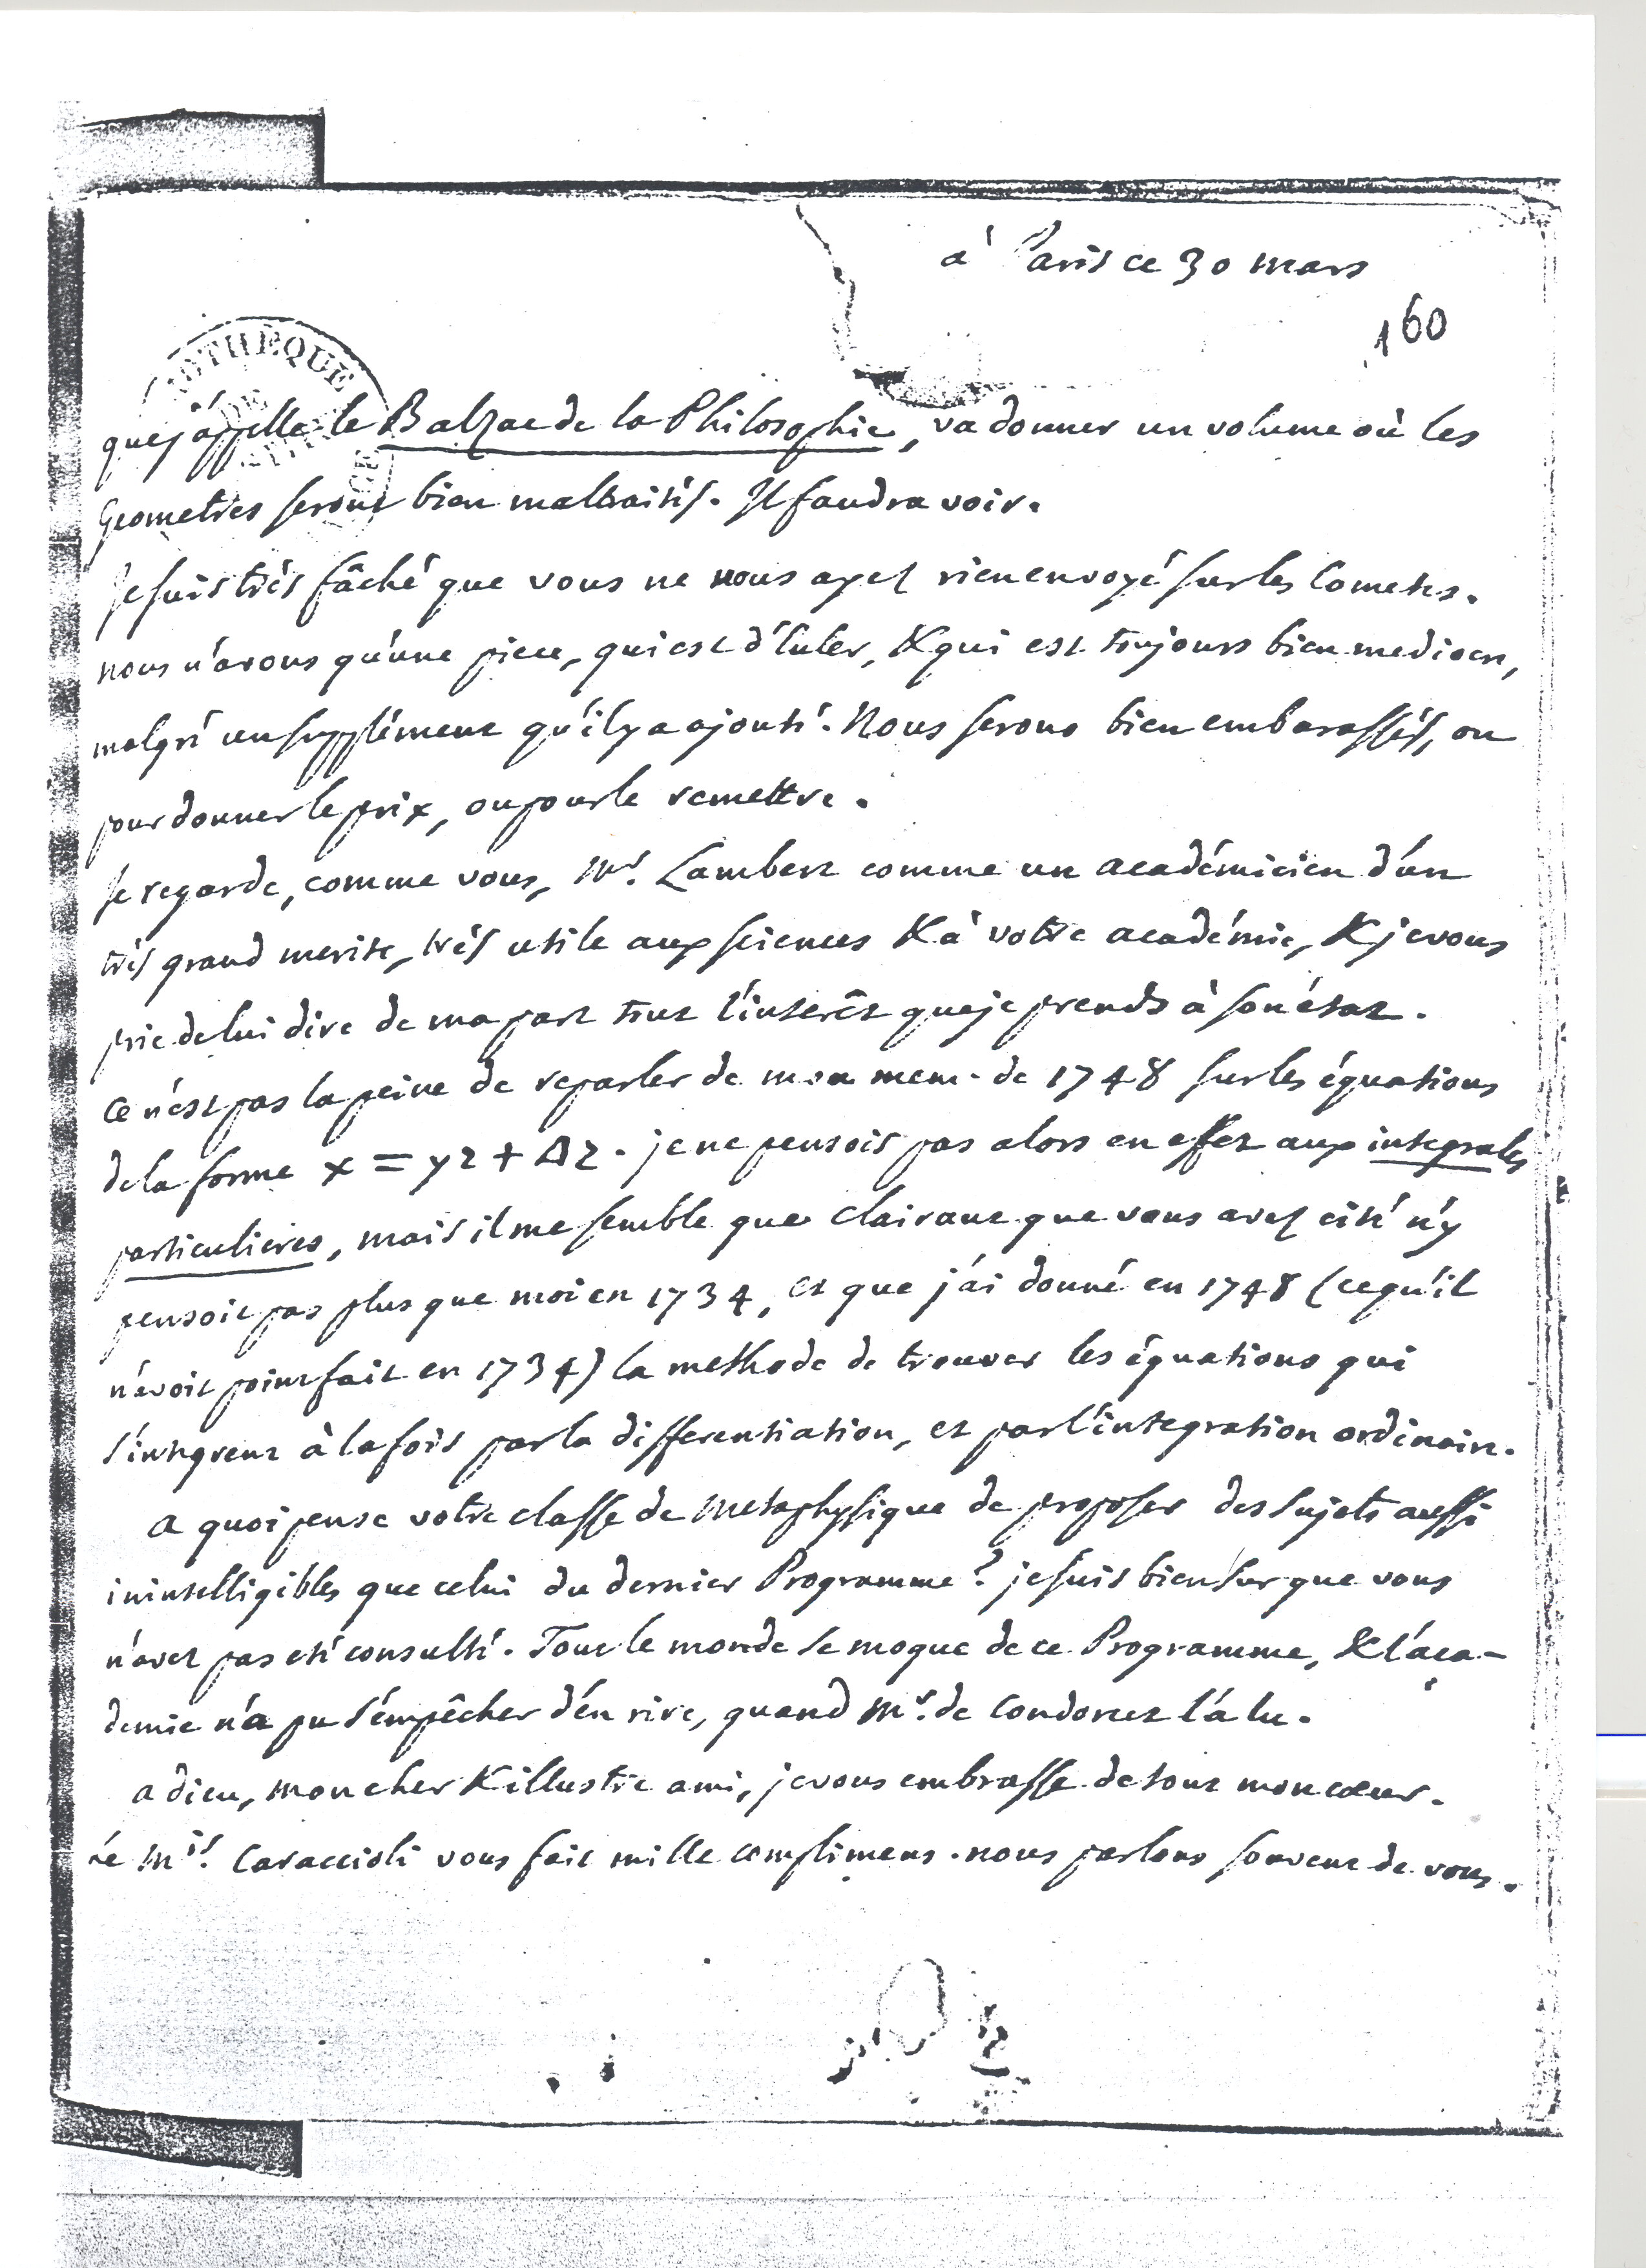 à Paris ce 30 mars
160
OTHÈQUE
DE
que j'appelle le Balzac de la Philosophie, va donner un volume où les
Geometres seront bien maltraités. Il faudra voir.
Je suis très fâché que vous ne nous ayez rien envoyé sur les Cometes.
nous n'avons qu'une piece, qui est d'Euler, & qui est toujours bien mediocre,
malgré un supplément qu'il y a ajouté. Nous serons bien embarassés, ou
pour donner le prix, ou pour le remettre.
Je regarde, comme vous, Mr. Lambert comme un académicien d'un
très grand merite, très utile aux sciences & à votre académie, & je vous
prie de lui dire de ma part tout l'intérêt que je prends à son état.
Ce n'est pas la peine de reparler de mon mem. de 1748 sur les équations
de la forme x = yz + Δz. je ne pensois pas alors en effet aux integrales
particulieres, mais il me semble que Clairaut que vous avez cité n'y
pensoit pas plus que moi en 1734, et que j'ai donné en 1748 (ce qu'il
n'avoit point fait en 1734) la methode de trouver les équations qui
s'integrent à la fois par la differentiation, et par l'integration ordinaire.
a quoi pense votre classe de Metaphysique de proposer des sujets aussi
inintelligibles que celui du dernier Programme? je suis bien sur que vous
n'avez pas eté consulté. Tout le monde se moque de ce Programme, & l'aca-
demie n'a pu s'empêcher d'en rire, quand Mr. de Condorcet l'a lu.
adieu, mon cher & illustre ami, je vous embrasse de tout mon cœur.
Le Mis. Caraccioli vous fait mille complimens. nous parlons souvent de vous.